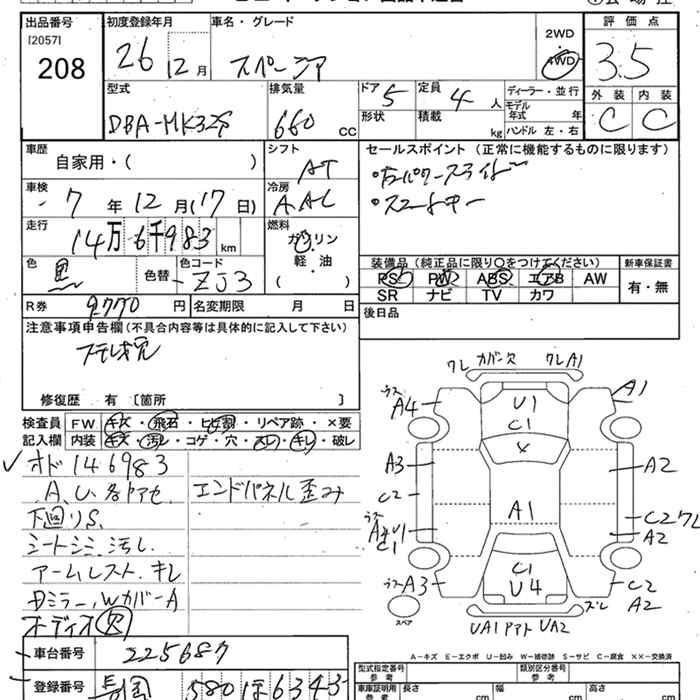 出品番号 初度登録年月 車名・グレード 評価点
[2057] 208 26 12月 スペーシア 2WD 4WD 3.5
外装 内装
C C
型式 排気量 ドア 定員 ディーラー・並行
DBA-MK32S 660 CC 5 4人 モデル年式 年
形状 積載 kg ハンドル 左・右
車歴 シフト セールスポイント (正常に機能するものに限ります)
自家用・( ) AT ・左パワースライドドア
車検 冷房 ・スマートキー
7年12月(17日) AAC
走行 燃料
14万6千983km ガソリン
軽・油
( )
色 色替 色コード
黒 ZJ3
装備品(純正品に限り○をつけてください) 新車保証書
PS PW ABS エアB AW 有・無
SR ナビ TV カワ
R券 9770円 名変期限 月 日 後日品
注意事項申告欄(不具合内容等は具体的に記入して下さい)
修復歴 有 〔箇所 〕
検査員記入欄 FW キズ・飛石・ヒビ割・リペア跡・×要
内装 キズ・汚レ・コゲ・穴・スレ・キレ・破レ
オド146983
A、U、多アセ エンドパネル歪み
下回りS
シートシミ、汚レ
アームレスト、キレ
Dミラー、WカバーA
オーディオ欠
ワレ カバー欠 ワレA1
ウス A4 U1 A1
C1
A3 X A2
C2
A1 C2ワレ
ウス A2
C1
ウスA3 C1 C2
U4 ズレ A2
スペア UA1 UA2
A-キズ E-エクボ U-凹み W-補修跡 S-サビ C-腐食 XX-交換済
車台番号 225687
登録番号 580 ほ6345
型式指定番号 参考 類別区分番号 参考
車庫証明用 参考 長さ cm 幅 cm 高さ cm